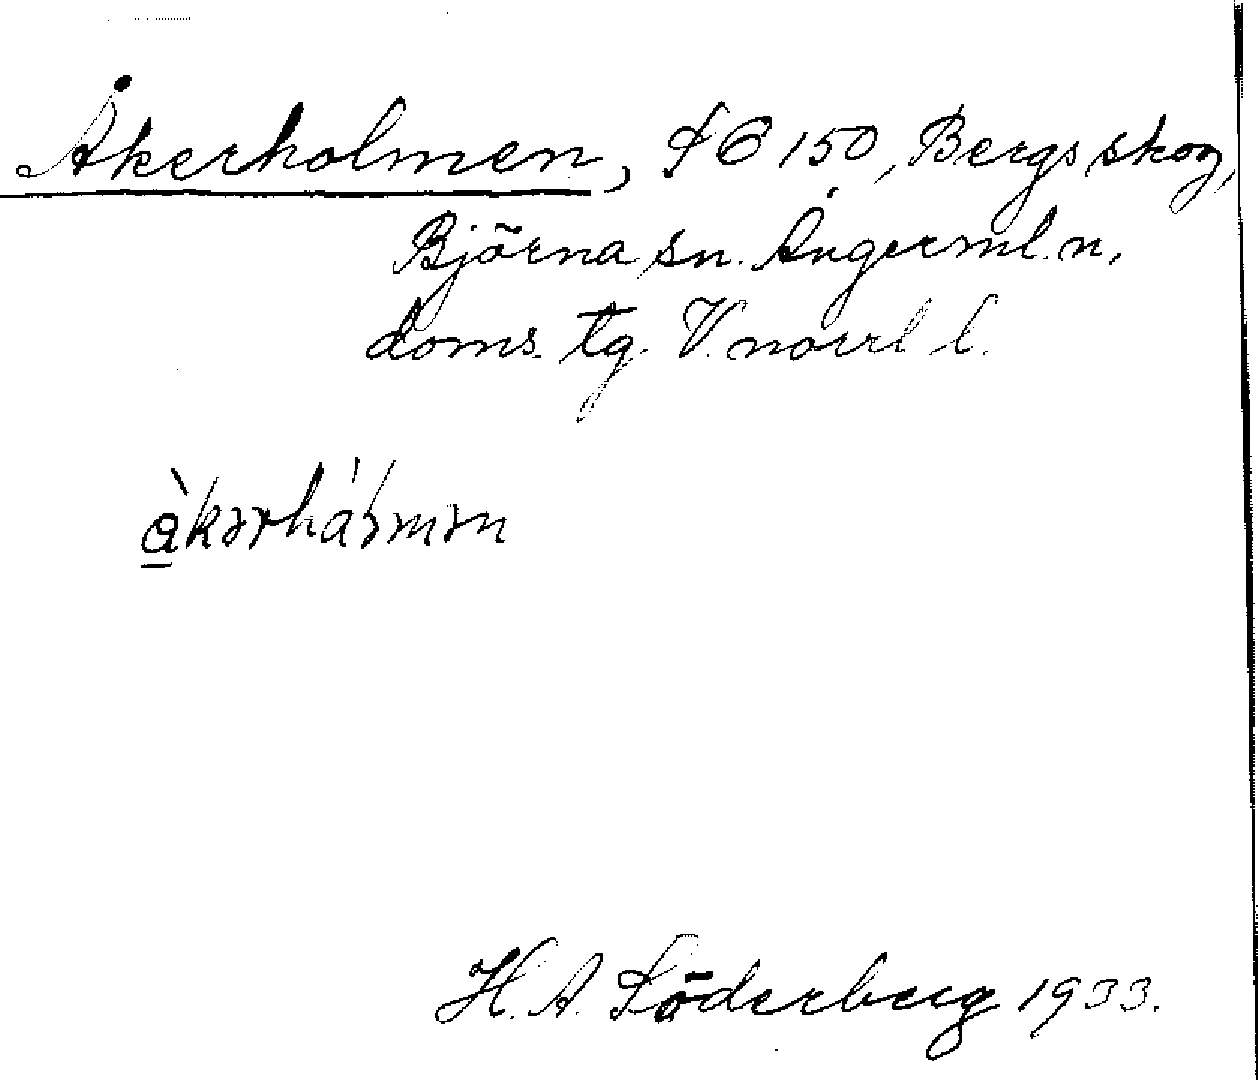 Åkerholmen, S6 150, Bergs skog,
Björna sn. Ångerml. n.
doms. tg. V. norrl l.
H. A. Söderberg 1933.